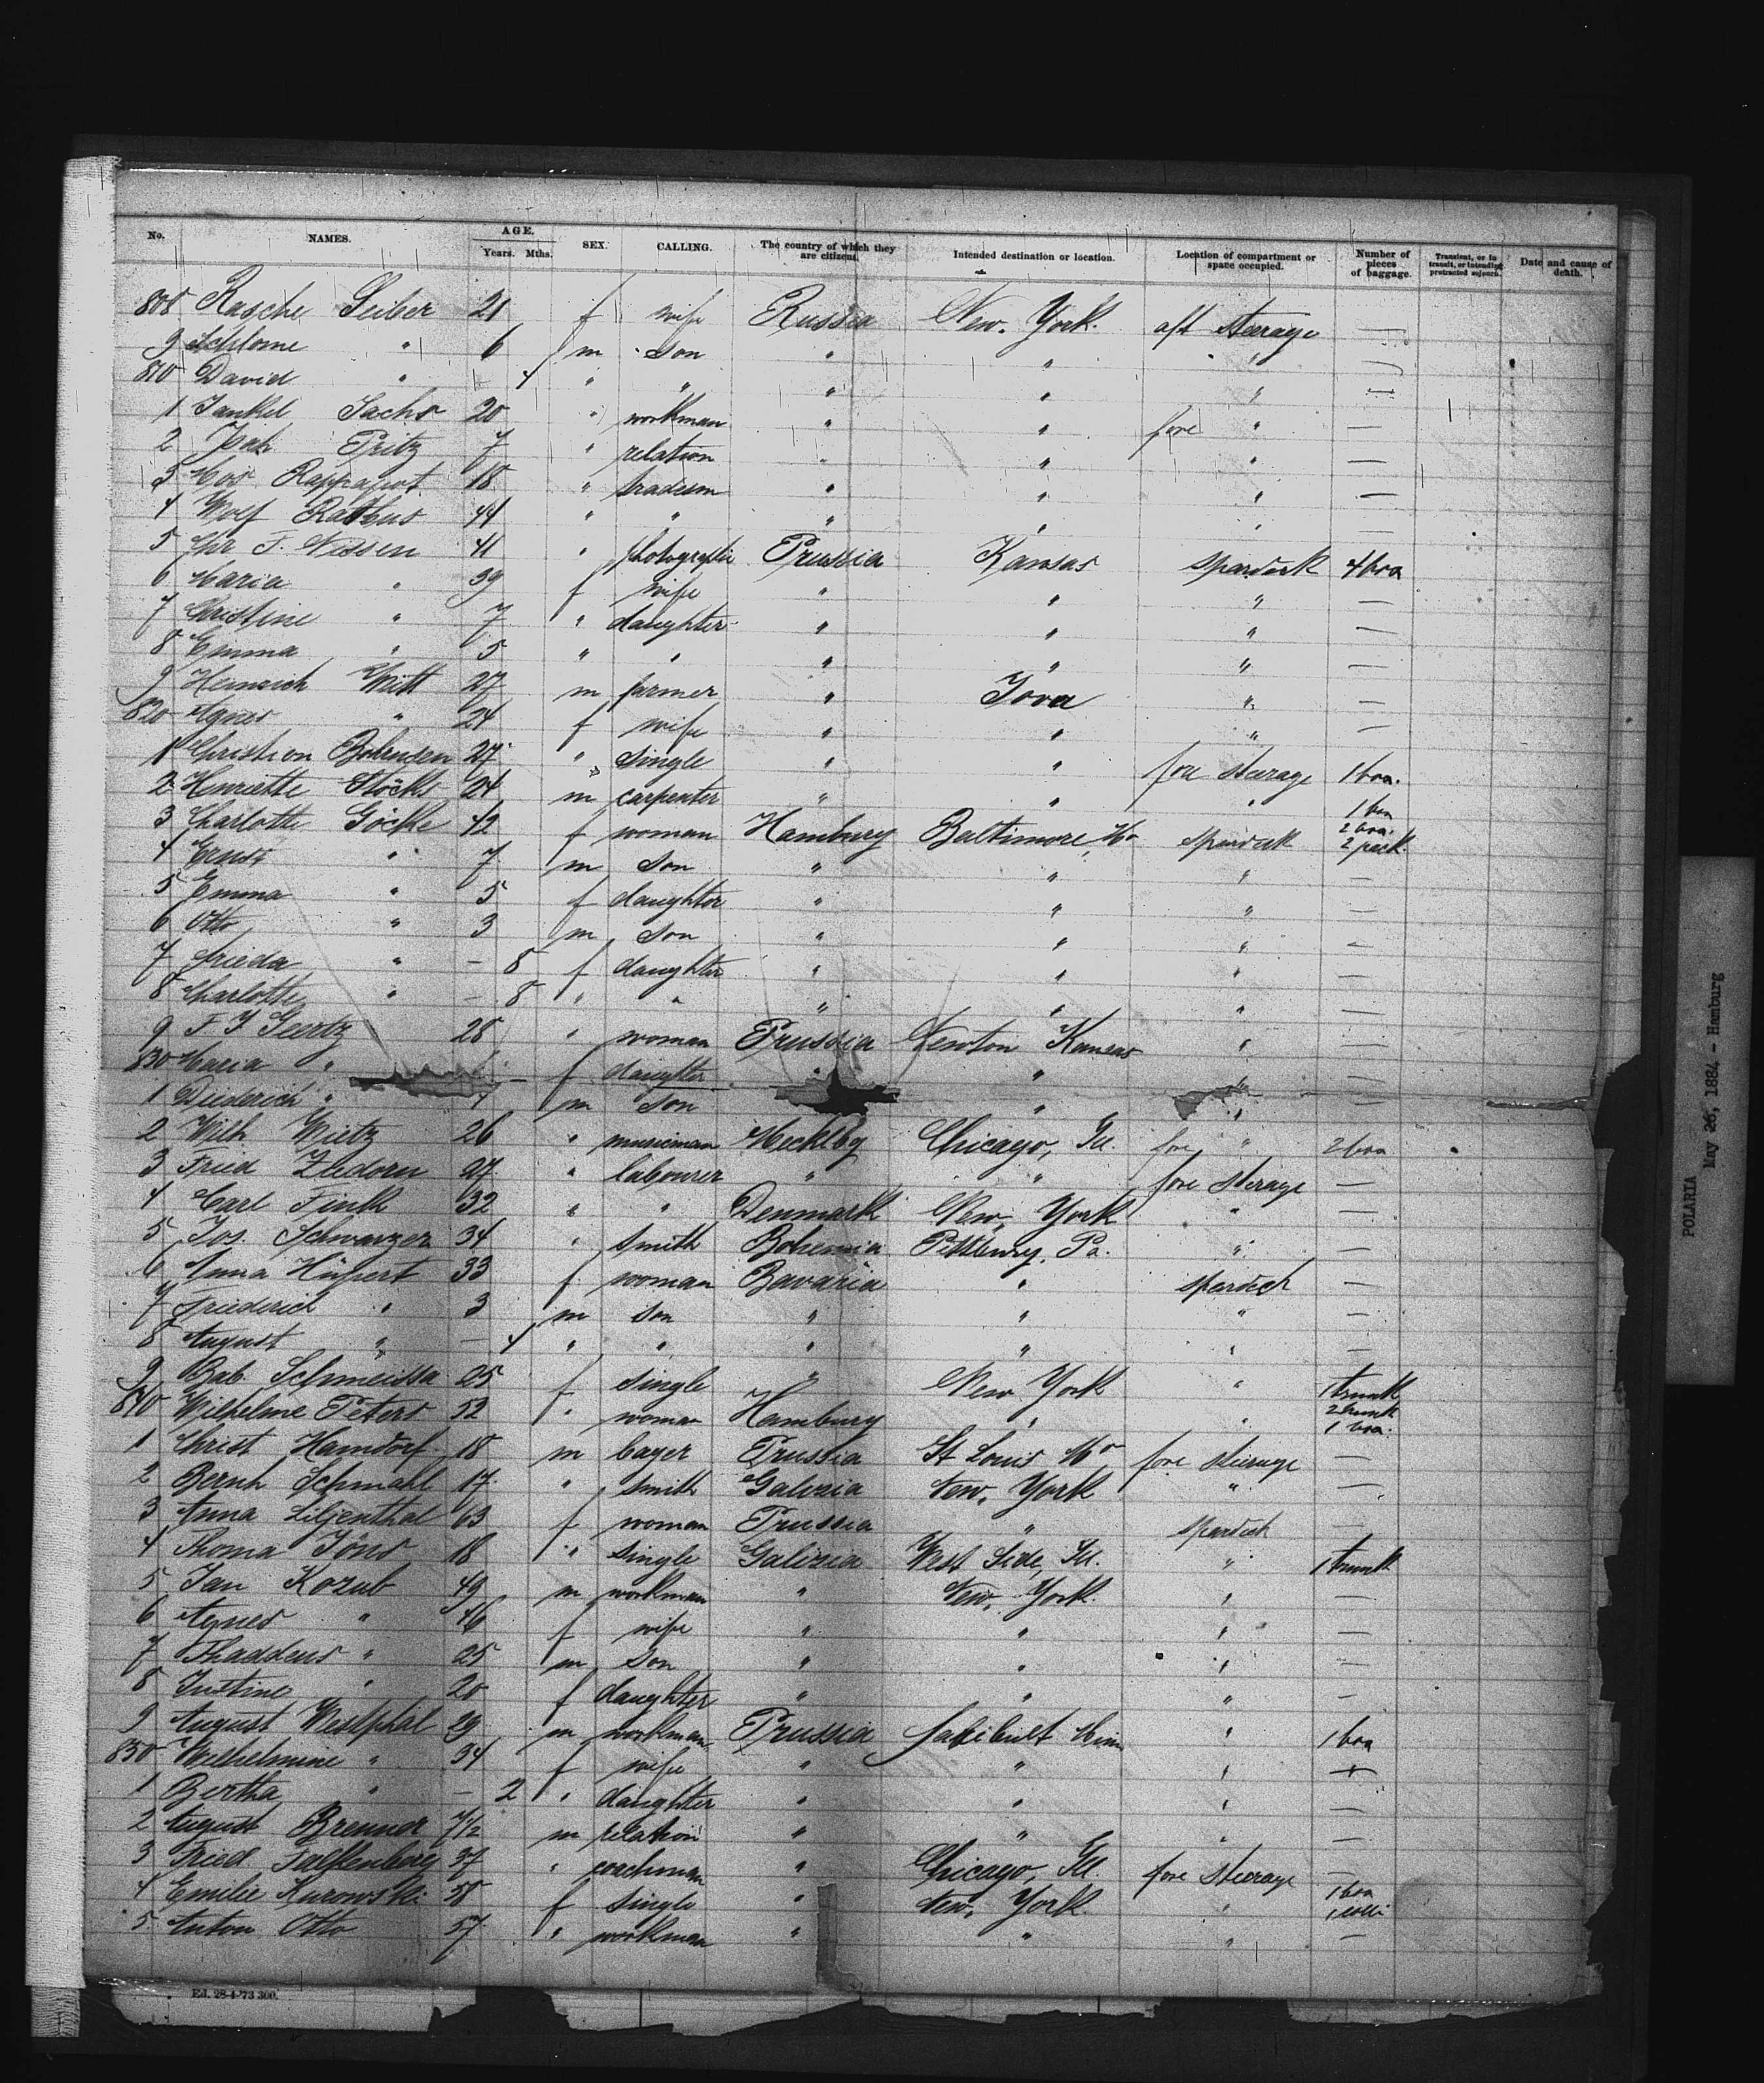 No. NAMES. AGE. Years. Mths. SEX. CALLING. The country of which they are citizens. Intended destination or location. Location of compartment or space occupied. Number of pieces of baggage. Transient, or in transit, or intending protracted sojourn. Date and cause of death.
808 Rasche Leiber 21 f wife Russia New York. aft steerage —
9 Schlome " 6 m son " " " —
810 David " 4 " " " " " —
1 Jankel Sachs 20 " workman " " fore " —
2 Fritz 7 " relation " " " —
3 Mos Rappaport 18 " tradesm " " " —
4 Wolf Rathus 44 " " " " " —
5 Chr F. Nissen 41 " photographer Prussia Kansas spardeck 4 box
6 Maria " 39 f wife " " " —
7 Christine " 7 " daughter " " " —
8 Emma " 5 " " " " " —
9 Heinrich Witt 27 m farmer " Iova " —
820 Agnes " 24 f wife " " " —
1 Christion Bohensen 27 " single " " fore steerage 1 box.
2 Henriette Stöcks 24 m carpenter " " " 1 box
3 Charlotte Göcke 42 f woman Hamburg Baltimore, Mo spardeck 2 box. 2 pack.
4 Ernst " 7 m son " " " —
5 Emma " 5 f daughter " " " —
6 Otto " 3 m son " " " —
7 Frieda " — 8 f daughter " " " —
8 Charlotte " — 8 " " " " " —
9 F J Geertz 28 " woman Prussia Newton Kansas " —
830 Maria " f daughter " " " —
1 Diederich " m son " " —
2 Wilh Wietz 26 " musicman Mecklbg Chicago, Ill. fore " 2 box
3 Fried Zledorn 27 " labourer " " fore steerage —
4 Carl Fink 32 " " Denmark New York " —
5 Jos. Schwarzer 34 " smith Bohemia Pittsburg, Pa. " —
6 Anna Hüpert 33 f woman Bavaria " spardeck —
7 Friederich " 3 m son " " " —
8 August " — 4 " " " " " —
9 Bab. Schmeissa 25 f single " New York " 1 trunk
840 Wilhelme Peters 52 " woman Hamburg " " 2 trunk 1 box.
1 Christ Hamdorf 18 m Prussia St Louis Mo fore steerage —
2 Bernh Schmahl 17 " smith Galizia New York " —
3 Anna Liljenthal 63 f woman Prussia " spardeck —
4 Thoma Jöns 18 " single Galizia West Side, Ill. " 1 trunk
5 Jan Kozub 49 m workman " New York. " —
6 Agnes " 46 f wife " " " —
7 Thaddeus " 25 m son " " " —
8 Justine " 20 f daughter " " " —
9 August Westphal 29 m workman Prussia Minn " 1 box
850 Wilhelmine " 34 f wife " " " —
1 Bertha " — 2 " daughter " " " —
2 August Brenner 7 1/2 m relation " " " —
3 Fried Falkenberg 37 " coachman " Chicago, Ill. fore steerage —
4 Emilie Kurowski 58 f single " New York. " 1 box 1 colli
5 Anton Otto 57 " workman " " " —
Ed. 28-4-73 300.
POLARIA May 26, 1884 - Hamburg